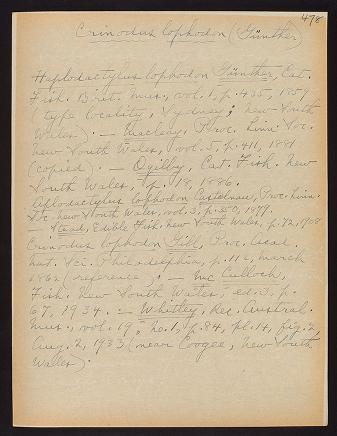 478
Crinodus lophodon (Günther)
Haplodactylus lophodon Günther, Cat.
Fish. Brit. Mus., vol. 1, p. 435, 1859
(type locality, Sydney; New South
Wales). — Macleay, Proc. Linn. Soc.
New South Wales, vol. 5, p. 411, 1881
(copied). — Ogilby, Cat. Fish. New
South Wales, p. 18, 1886.
Aplodactylus lophodon Castelnau, Proc. Linn.
Soc. New South Wales, vol. 3, p. 1879.
— Stead, Edible Fish. New South Wales, p. 72, 1908
Crinodus lophodon Gill, Proc. Acad.
Nat. Sci. Philadelphia, p. 112, March
1862 (reference; — McCulloch,
Fish. New South Wales, ed. 3, p.
67, 1934. — Whitley, Rec. Austral.
Mus., vol. 19, no. 1, p. 84, pl. 14, fig. 2,
Aug. 2, 1933 (near Coogee, New South
Wales).